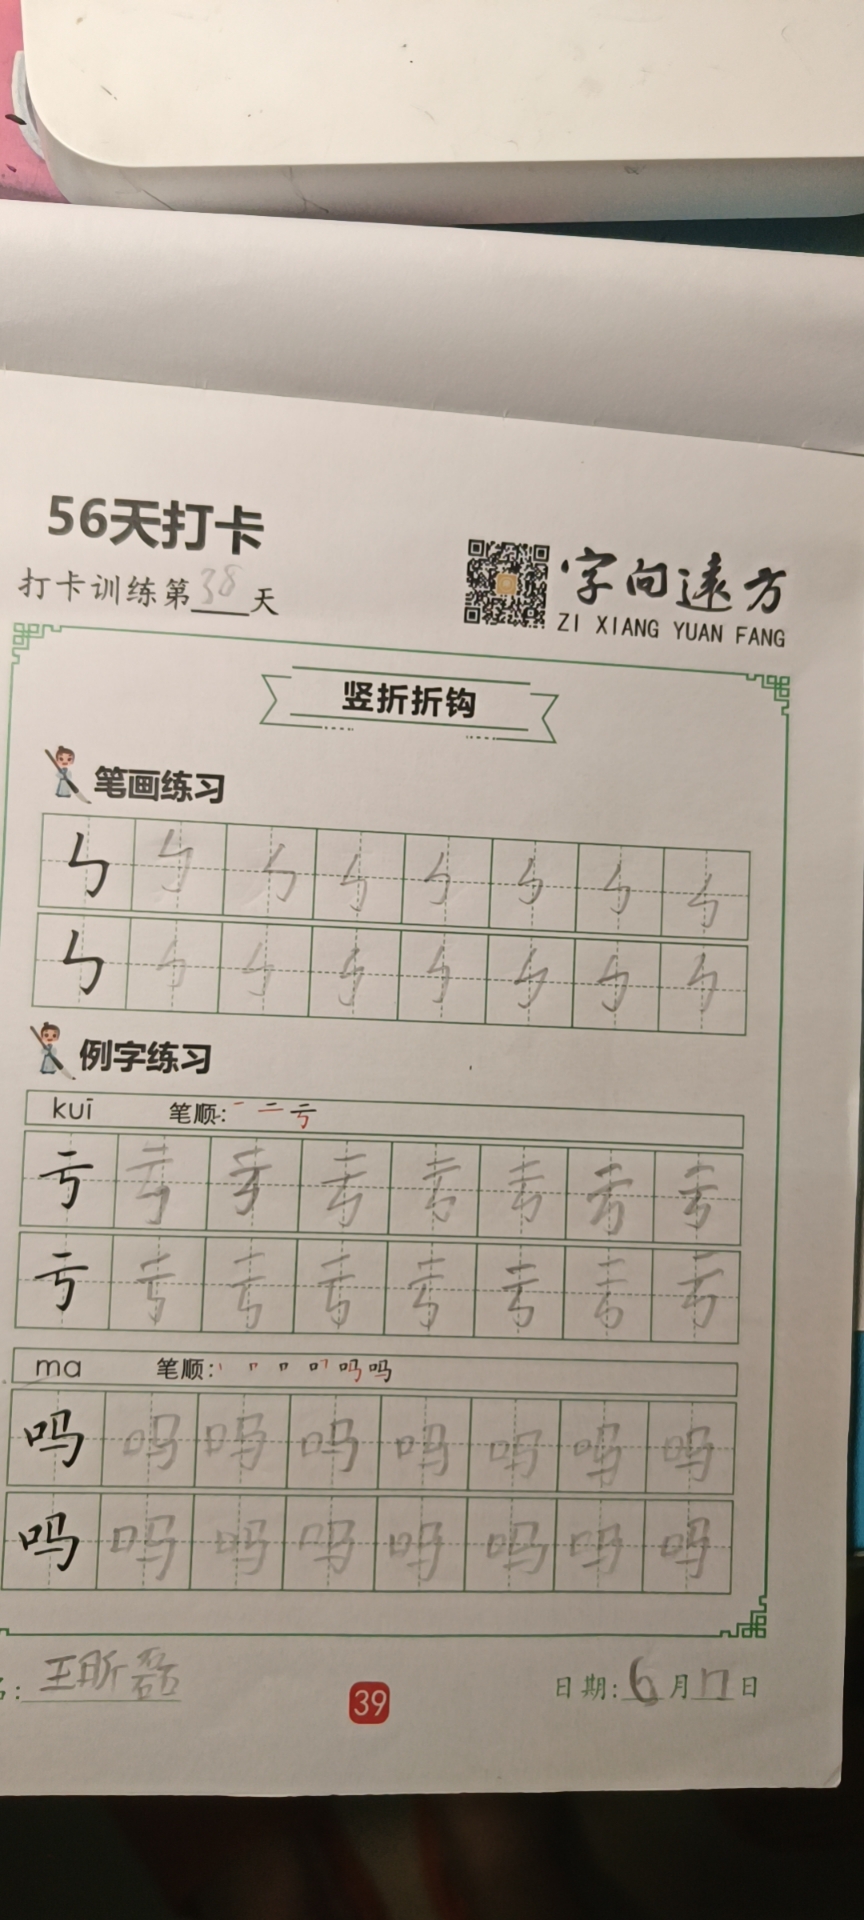 56天打卡
打卡训练第38天
字向远方
ZI XIANG YUAN FANG
竖折折钩
笔画练习
例字练习
kuī 笔顺: 一 二 亏
亏 亏 亏 亏 亏 亏 亏 亏
亏 亏 亏 亏 亏 亏 亏 亏
ma 笔顺: 吗 吗
吗 吗 吗 吗 吗 吗 吗 吗
吗 吗 吗 吗 吗 吗 吗 吗
名: 王昕磊
39
日期: 6月17日